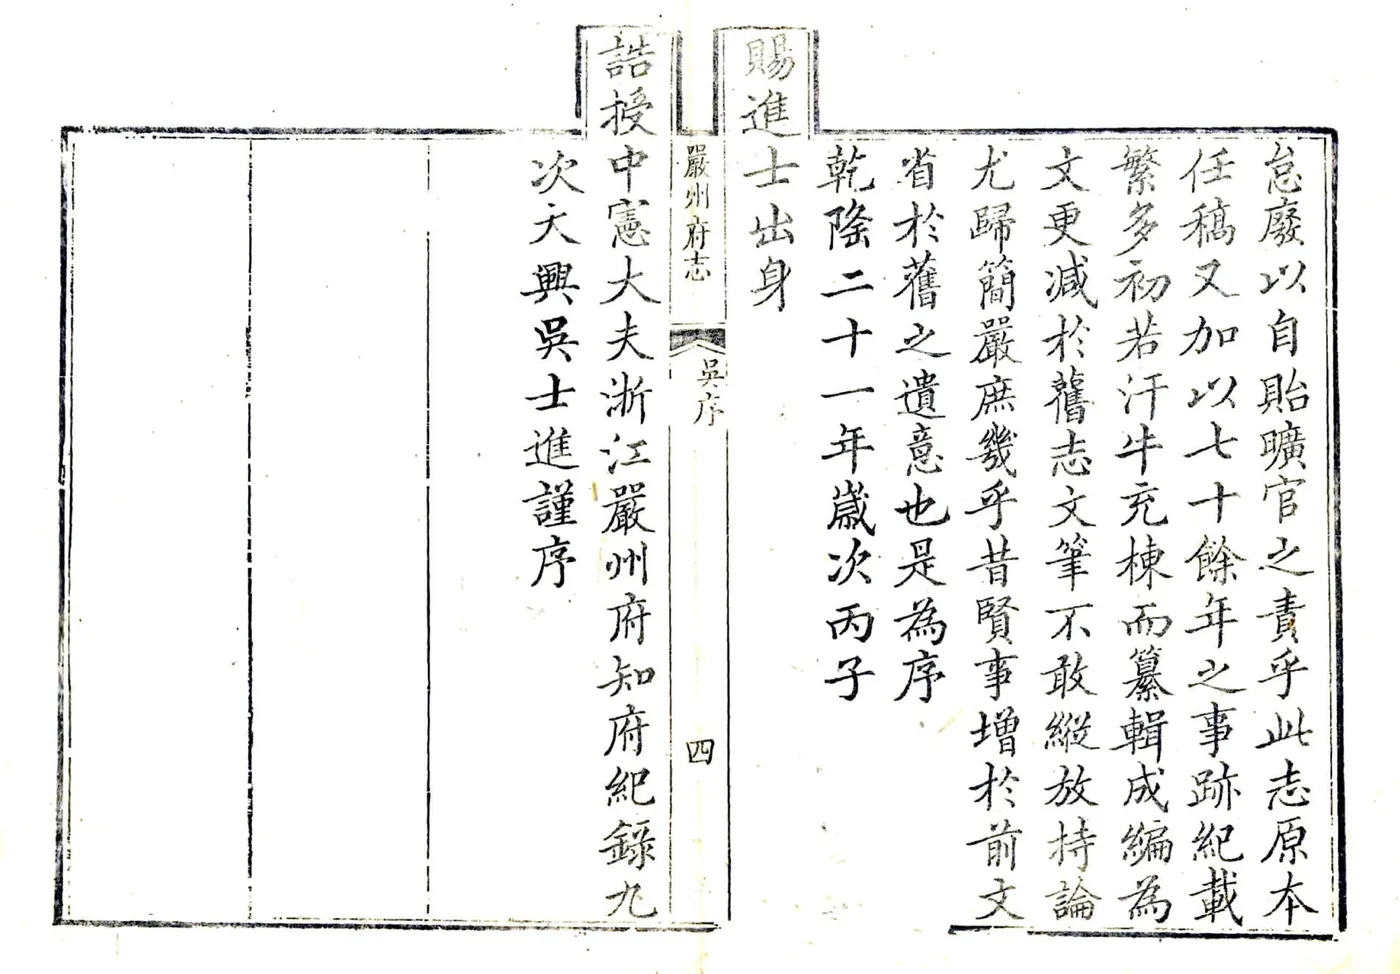 怠廢以自貽曠官之責乎此志原本
任稿又加以七十餘年之事跡紀載
繁多初若汗牛充棟而纂輯成編為
文更減於舊志文筆不敢縱放持論
尤歸簡嚴庶幾乎昔賢事增於前文
省於舊之遺意也是為序
乾隆二十一年歲次丙子
賜進士出身
嚴州府志
吳序
四
誥授中憲大夫浙江嚴州府知府紀錄九
次大興吳士進謹序